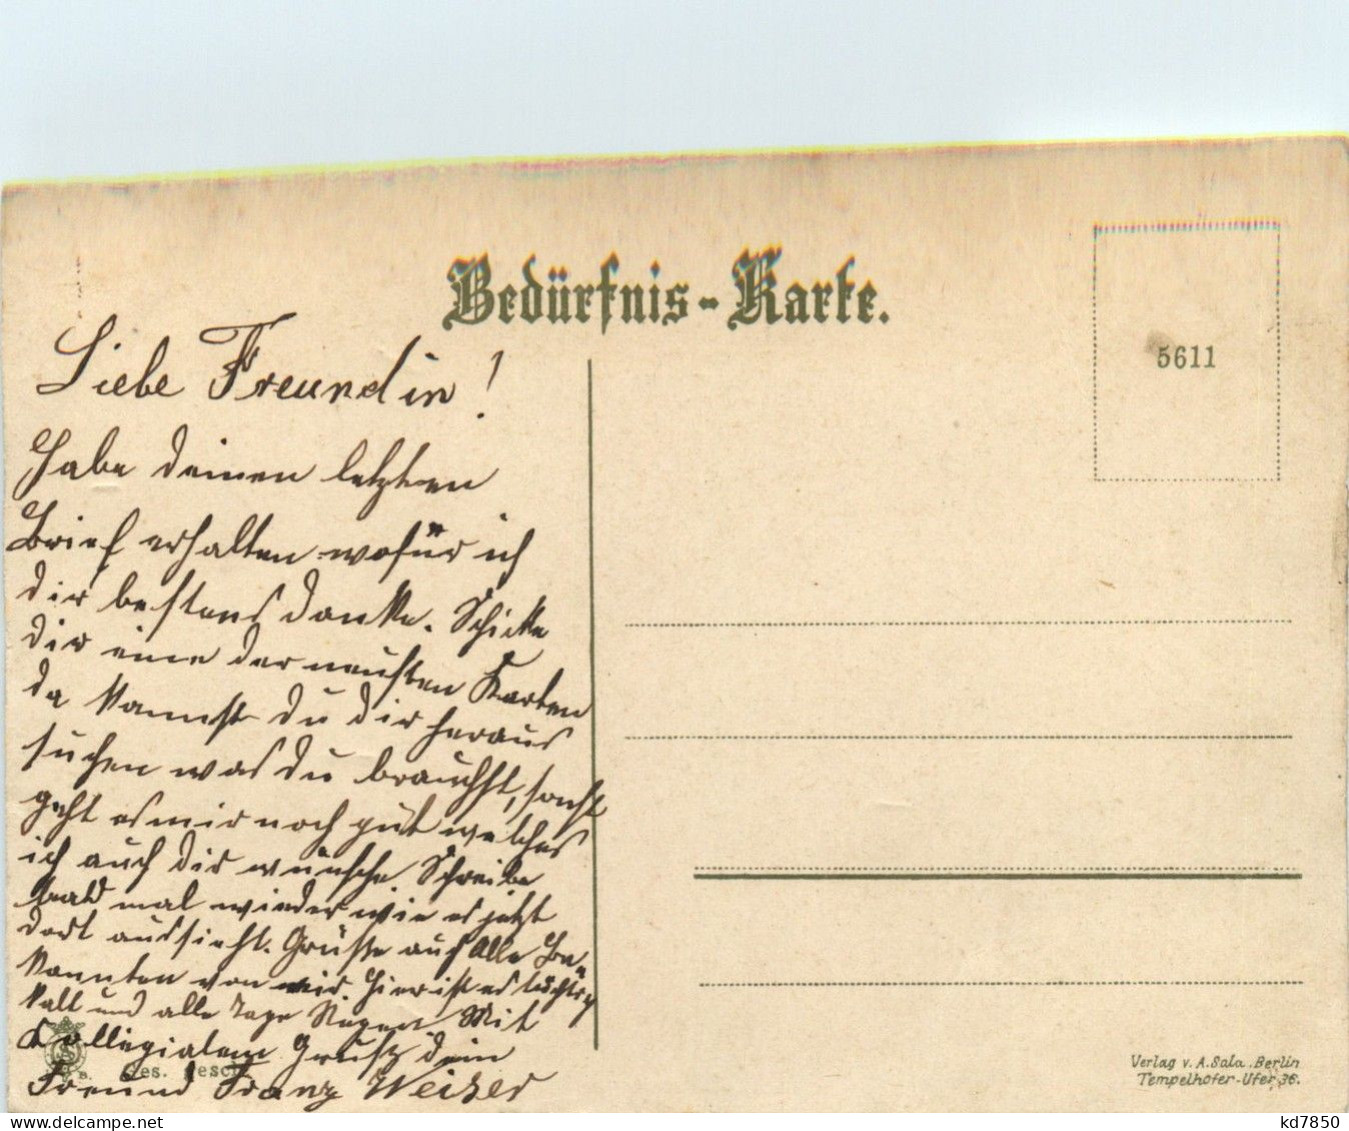 Bedürfnis-Karte.
5611
Liebe Freundin!
Habe deinen letzten
Brief erhalten wofür ich
dir bestens danke. Schicke
dir eine der neusten Karten
da kannst du dir heraus
suchen was du brauchst, sonst
geht es mir noch gut welches
ich auch dir wünsche. Schreibe
bald mal wieder wie es jetzt
dort aussieht. Grüße auch Alle Be-
kannten von mir hier ist es tüchtig
kalt und alle Tage Regen. Mit
Kollegialem Gruß dein
Freund Franz Weiser
Ges. gesch.
Verlag v. A. Sala. Berlin
Tempelhofer-Ufer, 36.
kd7850